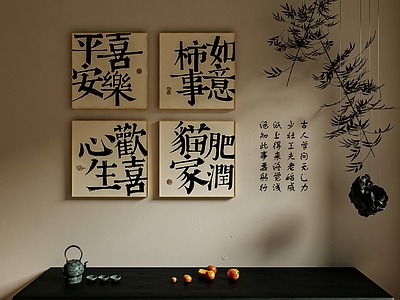 平安
喜樂
柿事
如意
心生
歡喜
貓家
肥潤
古人学问无遗力
少壮工夫老始成
纸上得来终觉浅
绝知此事要躬行